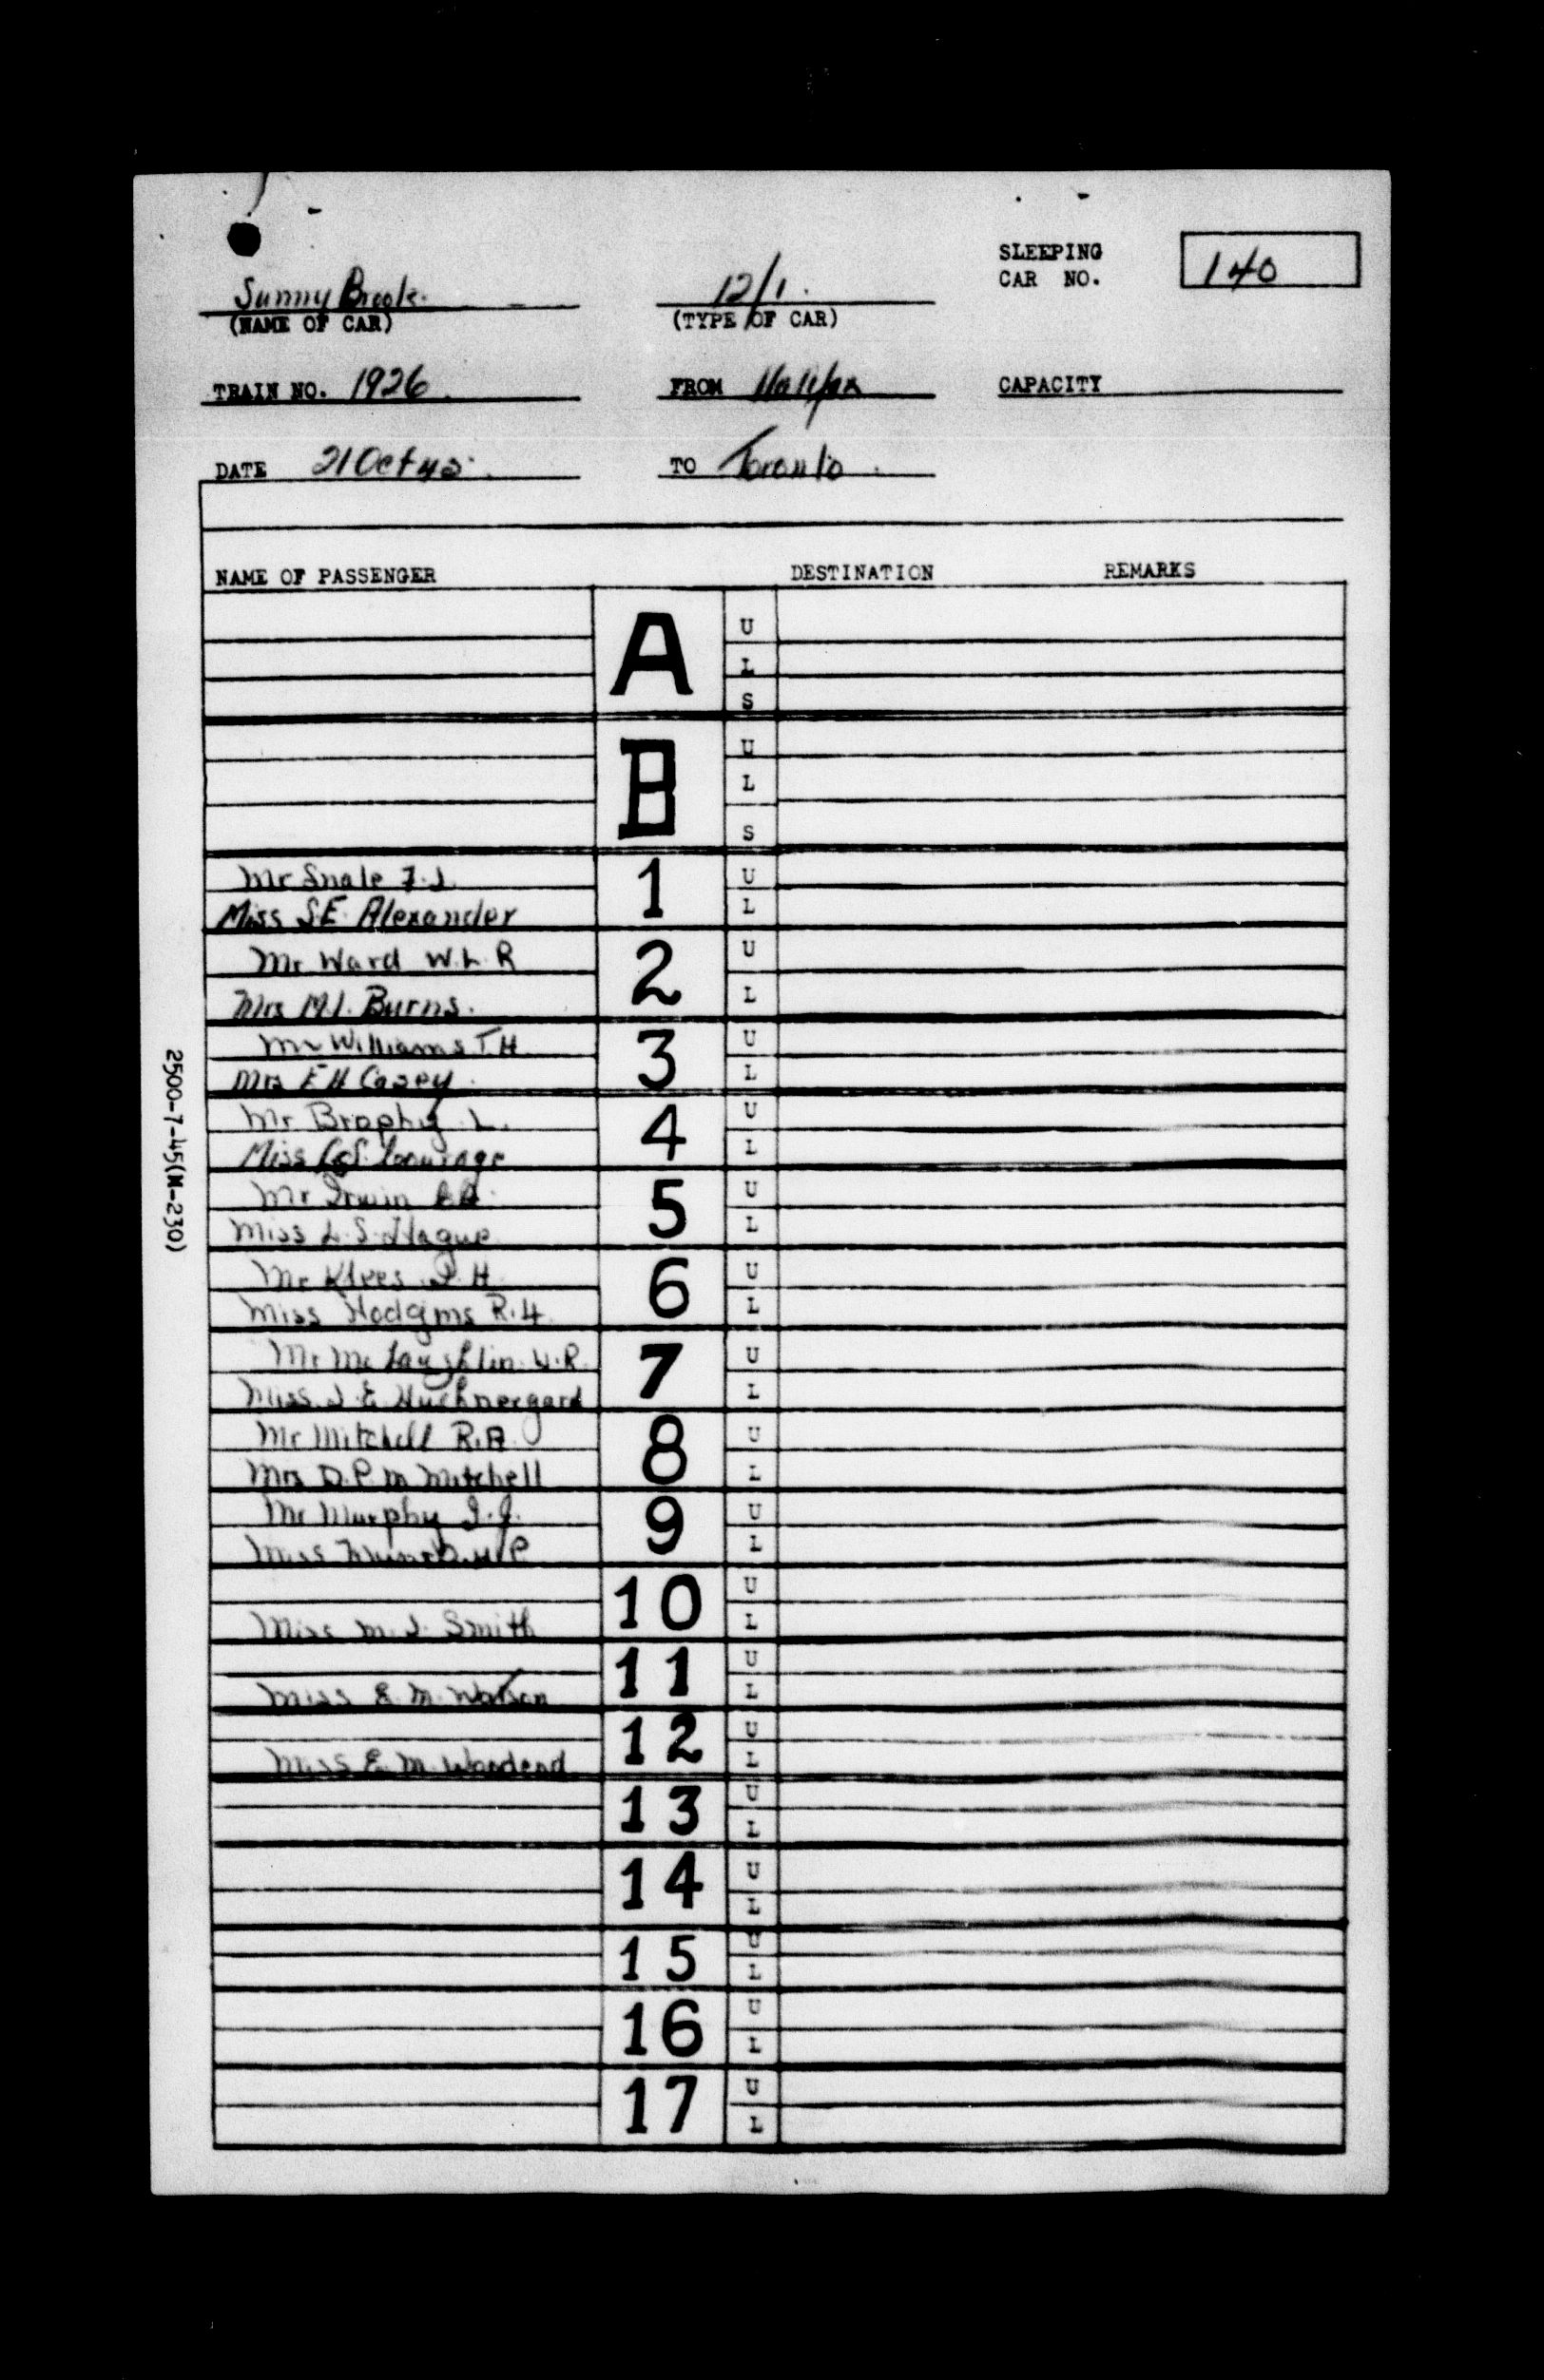 SLEEPING
CAR NO. 140
Sunny Brook. 12/1.
(NAME OF CAR) (TYPE OF CAR)
TRAIN NO. 1926 FROM Halifax CAPACITY
DATE 21 Oct 45. TO Toronto
NAME OF PASSENGER DESTINATION REMARKS
A U
L
S
B U
L
S
Mr Snale F.J. 1 U
Miss S.E. Alexander L
Mr Ward W.L.R 2 U
Mrs M.I. Burns. L
Mr Williams T.H. 3 U
Mrs E H Casey. L
Mr Brophy L. 4 U
Miss Courage L
Mr Irwin 5 U
Miss L.S. Hague L
Mr Klees J.H. 6 U
Miss Hodgins R.H. L
Mr McLaughlin W.R. 7 U
Miss J.E. Huehnergard L
Mr Mitchell R.A. 8 U
Mrs D.P.M Mitchell L
Mr Murphy J.J. 9 U
Miss L
10 U
Miss M.J. Smith L
11 U
Miss E.M. Watson L
12 U
Miss E.M. Woodend L
13 U
L
14 U
L
15 U
L
16 U
L
17 U
L
2500-7-45(M-230)